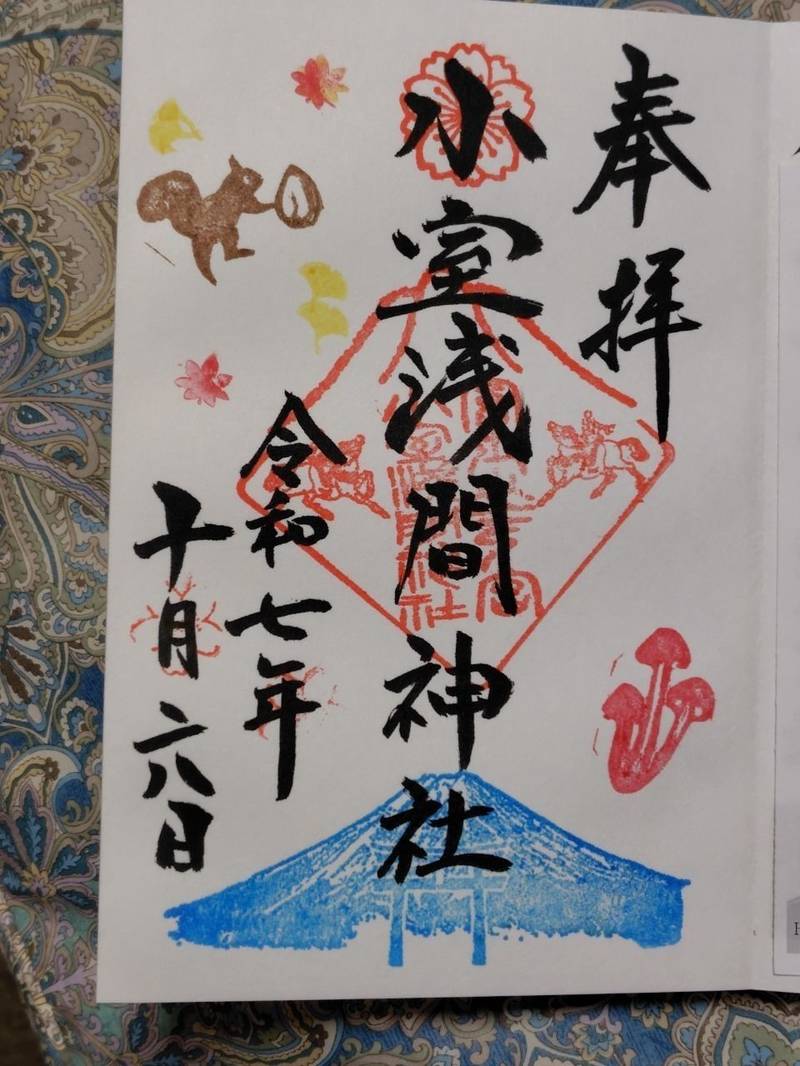 奉拝
小室浅間神社
令和七年
十月六日